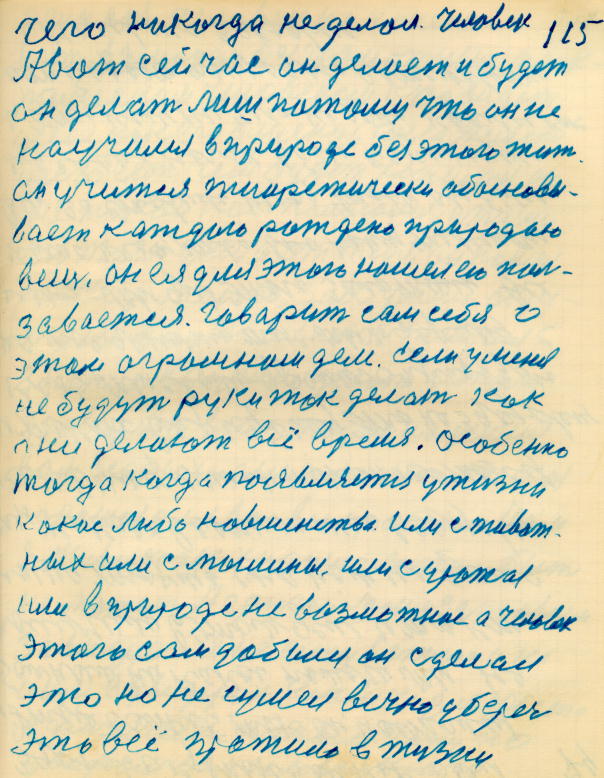 чего никогда не делал. человек 115
А вот сейчас он делает и будет
он делат лиш потому что он не
научился в природе без этого жит.
он учится тиоретически обоснова-
вает каждого рождено природаю
вещ. он ея для этого нашел ею пол-
завается. Говарит сам себя о
этом огромном дели. если у меня
не будут руки так делат как
они делают всё время. особенно
тогда когда появляятся у жизни
какое либо новшенства. или с живот-
ных или с машины. или с урожая
или в природе не возможное а человек
этого сам добился он сделал
это но не сумел вечно уберечь
это всё прожило в жизни